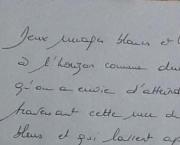 Deux nuages blancs et l
à l'horizon comme du
qu'on a envie d'atteind
traversant cette mer d
bleus et qui laissent ap